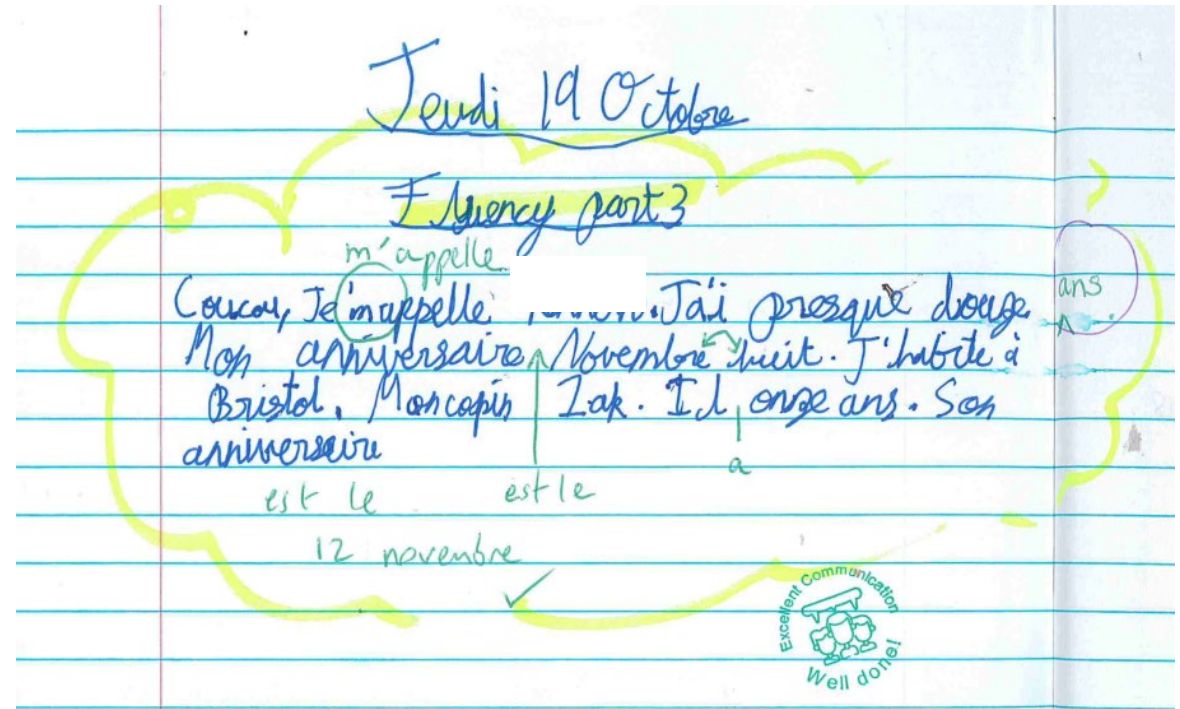 Jeudi 19 Octobre
Fluency part 3
m'appelle
Coucou, Je m'appelle . J'ai presque douze ans
Mon anniversaire Novembre huit. J'habite à
Bristol. Mon copin Zak. Il onze ans. Son
anniversaire
a
est le est le
12 novembre
Excellent Communication
Well done!